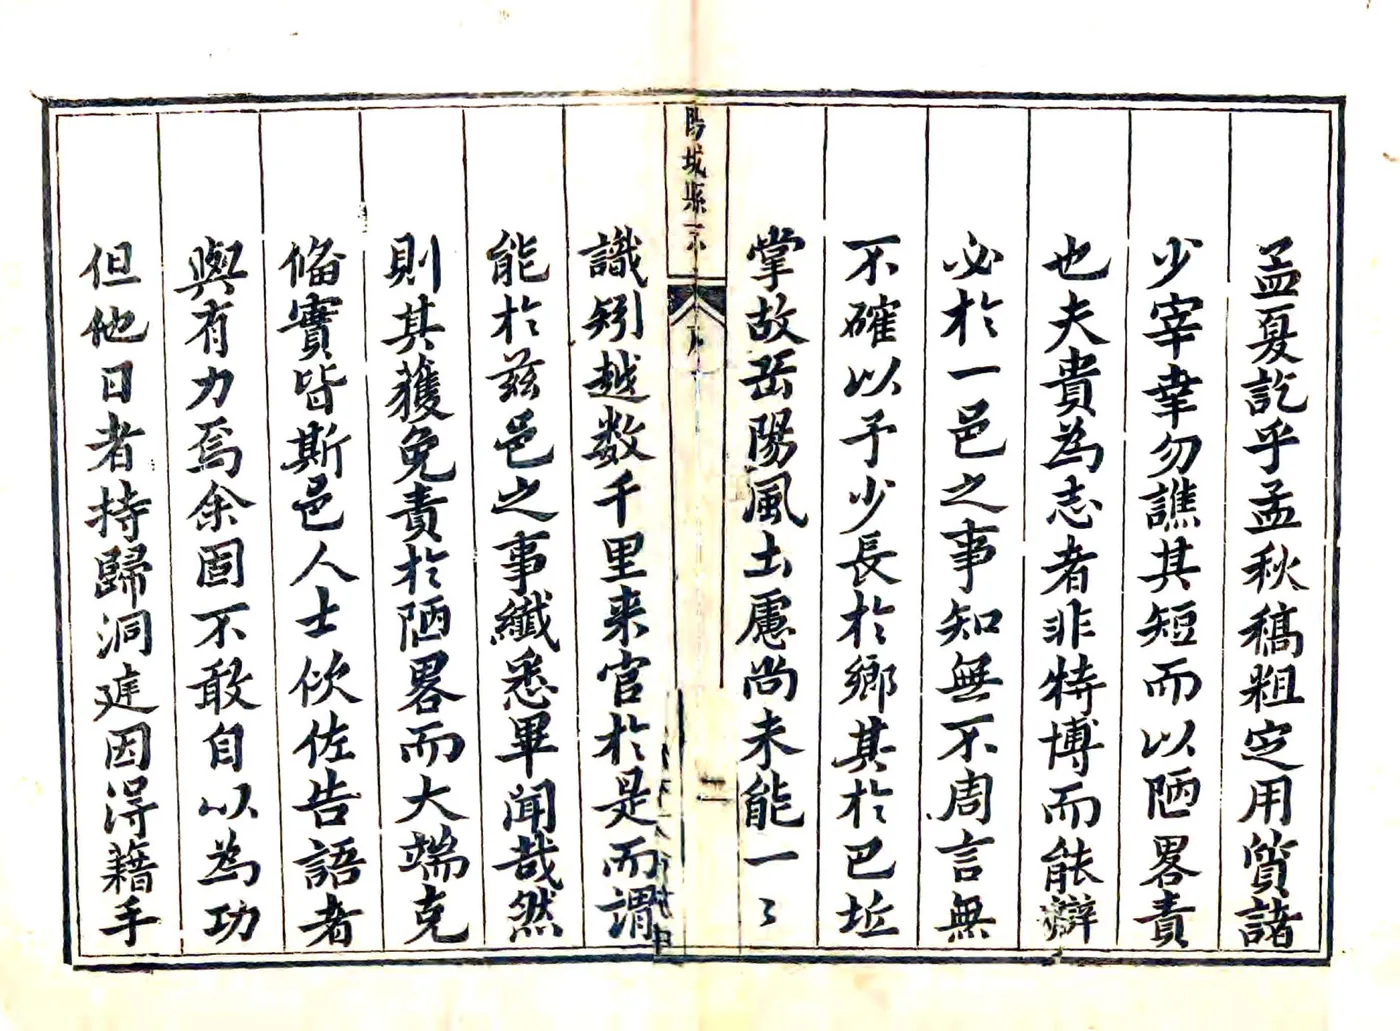 孟夏訖乎孟秋稿粗定用質諸
少宰幸勿譙其短而以陋畧責
也夫貴為志者非特博而能辯
必於一邑之事知無不周言無
不確以予少長於鄉其於巴坵
掌故岳陽風土慮尚未能一〻
陽城縣
二
識矧越数千里来官於是而謂
能於兹邑之事纖悉畢聞哉然
則其獲免責於陋畧而大端克
僃實皆斯邑人士佽佐告語者
與有力焉余固不敢自以為功
但他日者持歸洞庭因得藉手